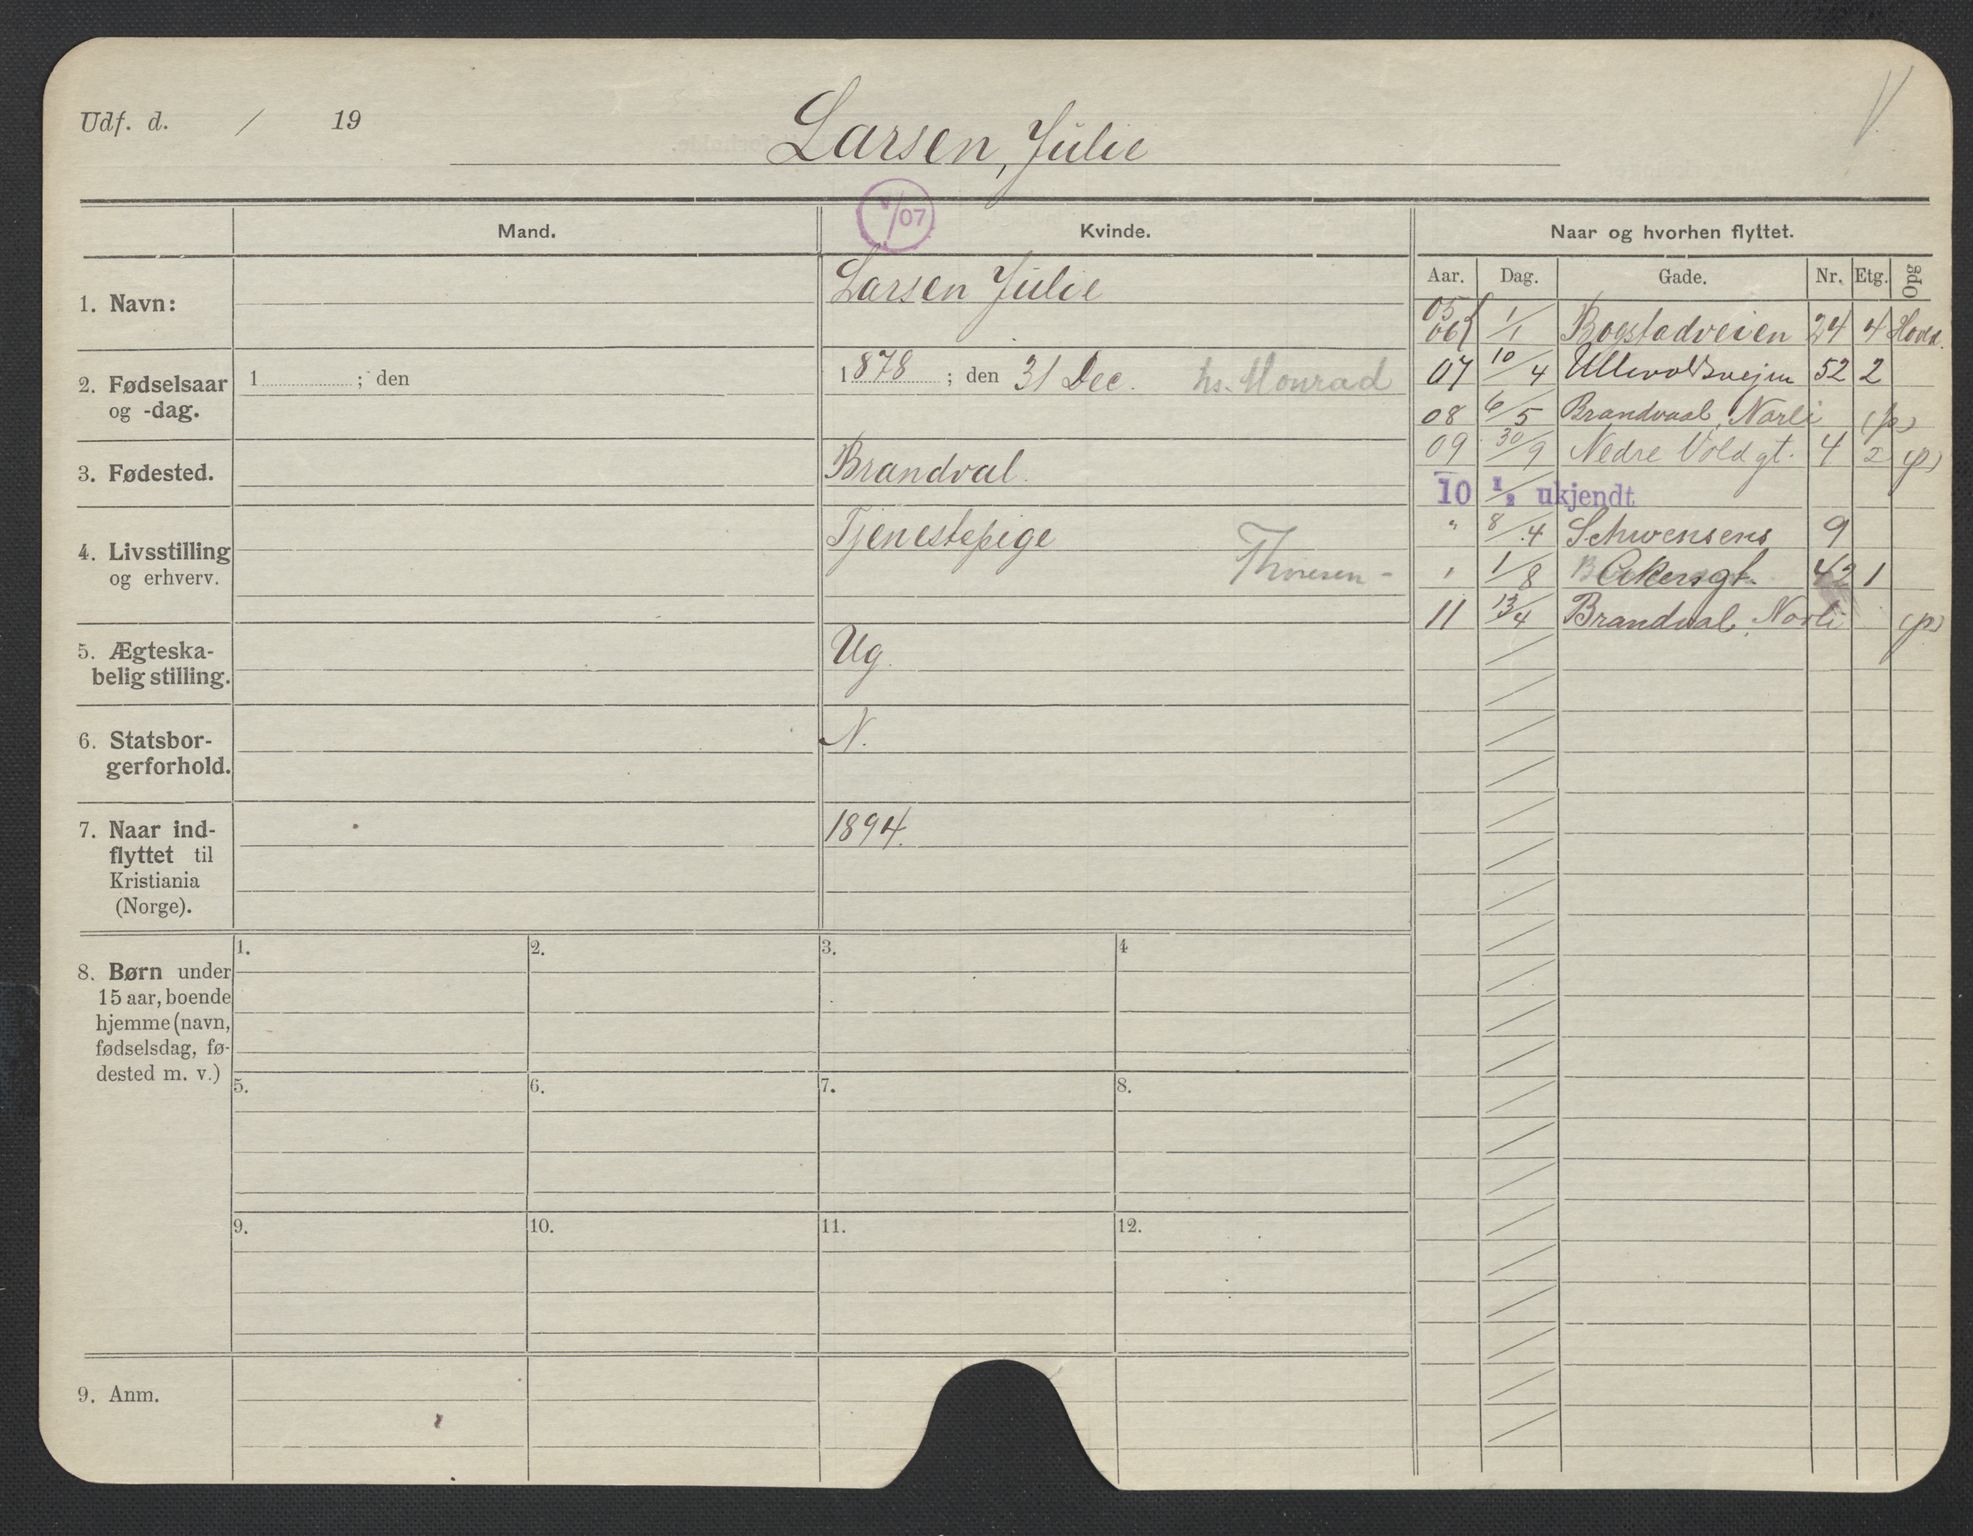 Udf. d. / 19
Larsen, Julie
V
Mand.
V/07
Kvinde.
Naar og hvorhen flyttet.
Aar. Dag. Gade. Nr. Etg. Opg
1. Navn:
Larsen Julie
2. Fødselsaar
og -dag.
1 ; den
1878 ; den 31 Dec. hs. Monrad
3. Fødested.
Brandval.
4. Livsstilling
og erhverv.
Tjenestepige
Thoresen -
5. Ægteska-
belig stilling.
Ug.
6. Statsbor-
gerforhold.
N.
7. Naar ind-
flyttet til
Kristiania
(Norge).
1894.
05
06 1/1 Bogstadveien 24 4 Hoved.
07 10/4 Ullevoldsvejen 52 2
08 6/5 Brandvaal, Norli (p)
09 30/9 Nedre Voldgt. 4 2 (p)
10 1/2 ukjendt
" 8/4 Schwensens 9
, 1/8 Akersgt. 42 1
11 13/4 Brandval, Norli (p)
8. Børn under
15 aar, boende
hjemme (navn,
fødselsdag, fø-
dested m. v.)
1. 2. 3. 4
5. 6. 7. 8.
9. 10. 11. 12.
9. Anm.